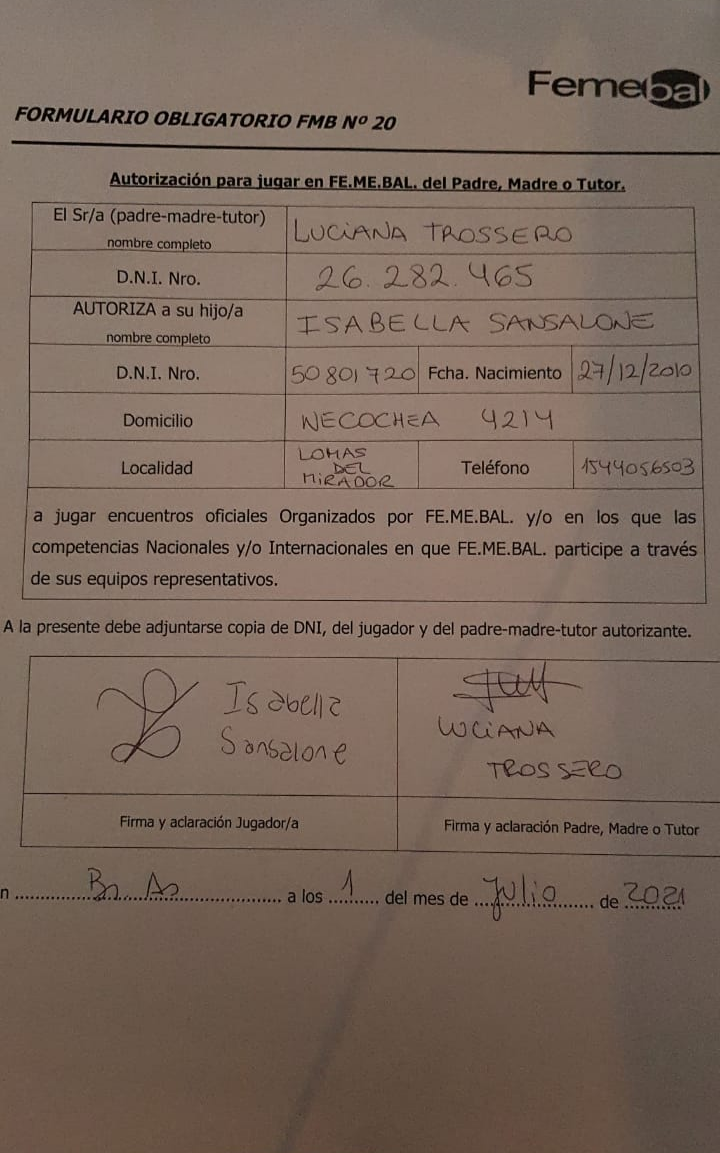 Femebal
FORMULARIO OBLIGATORIO FMB Nº 20
Autorización para jugar en FE.ME.BAL. del Padre, Madre o Tutor.
El Sr/a (padre-madre-tutor)
nombre completo
LUCIANA TROSSERO
D.N.I. Nro.
26.282.465
AUTORIZA a su hijo/a
nombre completo
ISABELLA SANSALONE
D.N.I. Nro.
50801720
Fcha. Nacimiento
27/12/2010
Domicilio
NECOCHEA 4214
Localidad
LOMAS
DEL
MIRADOR
Teléfono
1544056503
a jugar encuentros oficiales Organizados por FE.ME.BAL. y/o en los que las
competencias Nacionales y/o Internacionales en que FE.ME.BAL. participe a través
de sus equipos representativos.
A la presente debe adjuntarse copia de DNI, del jugador y del padre-madre-tutor autorizante.
Isabella
Sansalone
LUCIANA
TROSSERO
Firma y aclaración Jugador/a
Firma y aclaración Padre, Madre o Tutor
n Bs. As a los 1 del mes de Julio de 2021